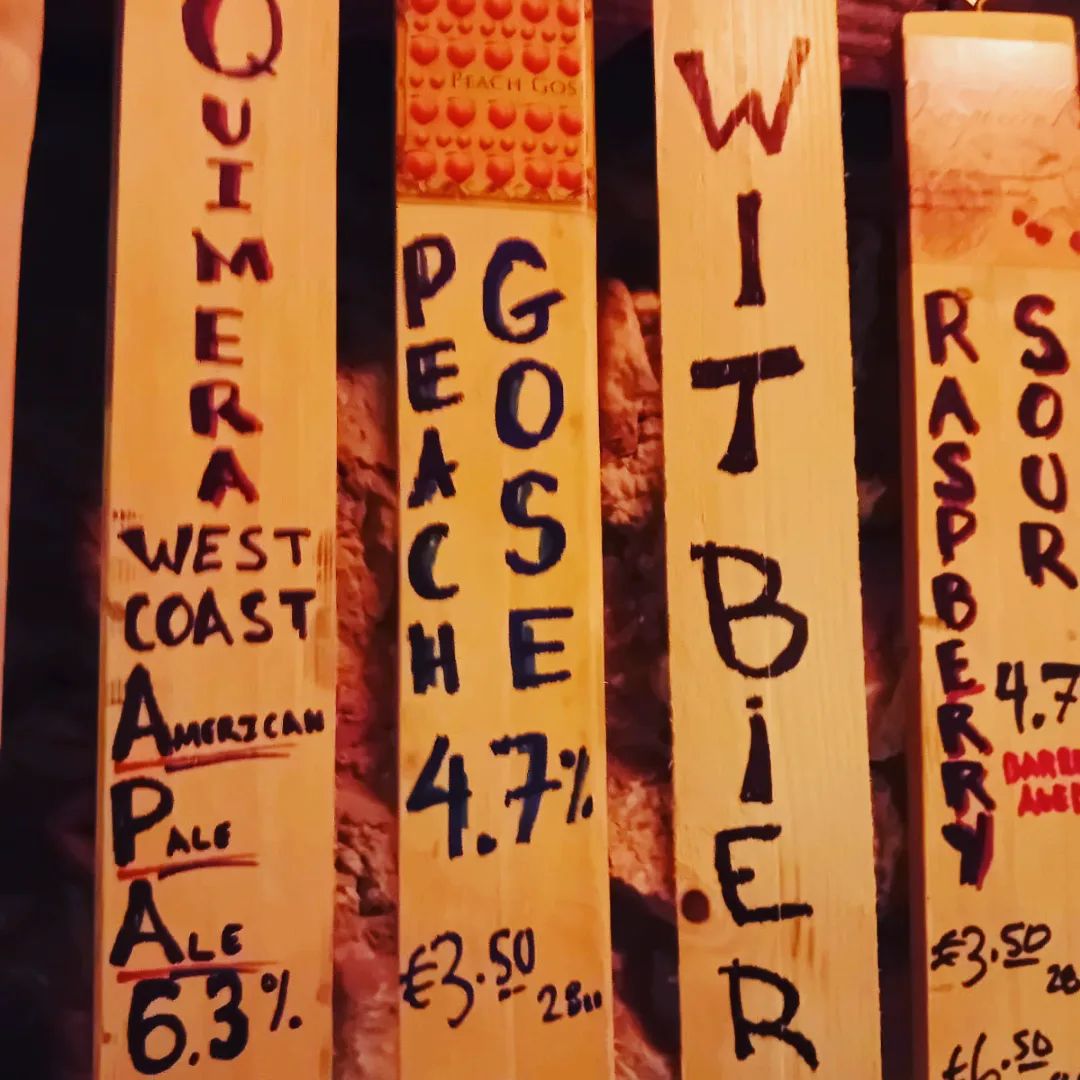 QUIMERA
WEST
COAST
AMERICAN
PALE
ALE
6.3%
PEACH GOS
PEACH
GOSE
4.7%
€3.50
WITBiER
RASPBERRY
SOUR
4.7
€3.50
28
€6.50